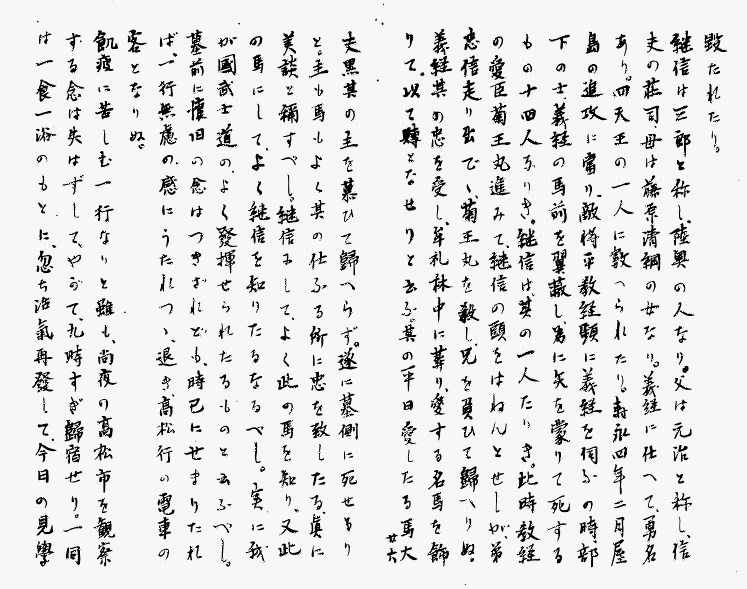 毀たれたり。
継信は三郎と称し、陸奥の人なり。父は元治と称し、信
夫の荘司母は藤原清綱の女なり。義経に仕へて、勇名
あり。四天王の一人に数へられたり。寿永四年二月屋
島の進攻に當り、敵将平教経頻に義経を伺ふの時、部
下の士義経の馬前を翼蔽し、為に矢を蒙りて死する
もの十四人なりき。継信は其の一人たりき。此時教経
の愛臣菊王丸進みて、継信の頭をはねんとせしが、弟
忠信走り出で、菊王丸を殺し、兄を負ひて歸へりぬ。
義経其の忠を愛し、牟礼林中に葬り、愛する名馬を飾
りて、以て賻となせりと云ふ。其の平日愛したる馬大
廿六
夫黒其の主を慕ひて歸へらず。遂に墓側に死せりり
と。主も馬もよく其の仕ふる所に忠を致したる、真に
美談と稱すべし。継信にして、よく此の馬を知り、又此
の馬にして、よく継信を知りたるなるべし。実に我
が國武士道の、よく發揮せられたるものと云ふべし。
墓前に懐旧の念はつきざれども、時已にせまりたれ
ば、一行無慮の感にうたれつゝ、退き高松行の電車の
客となりぬ。
飢疲に苦しむ一行なりと雖も、尚夜の高松市を観察
する念は失はずして、やがて、九時すぎ歸宿せり。一同
は一食一浴のもとに、忽ち活氣再發して、今日の見學